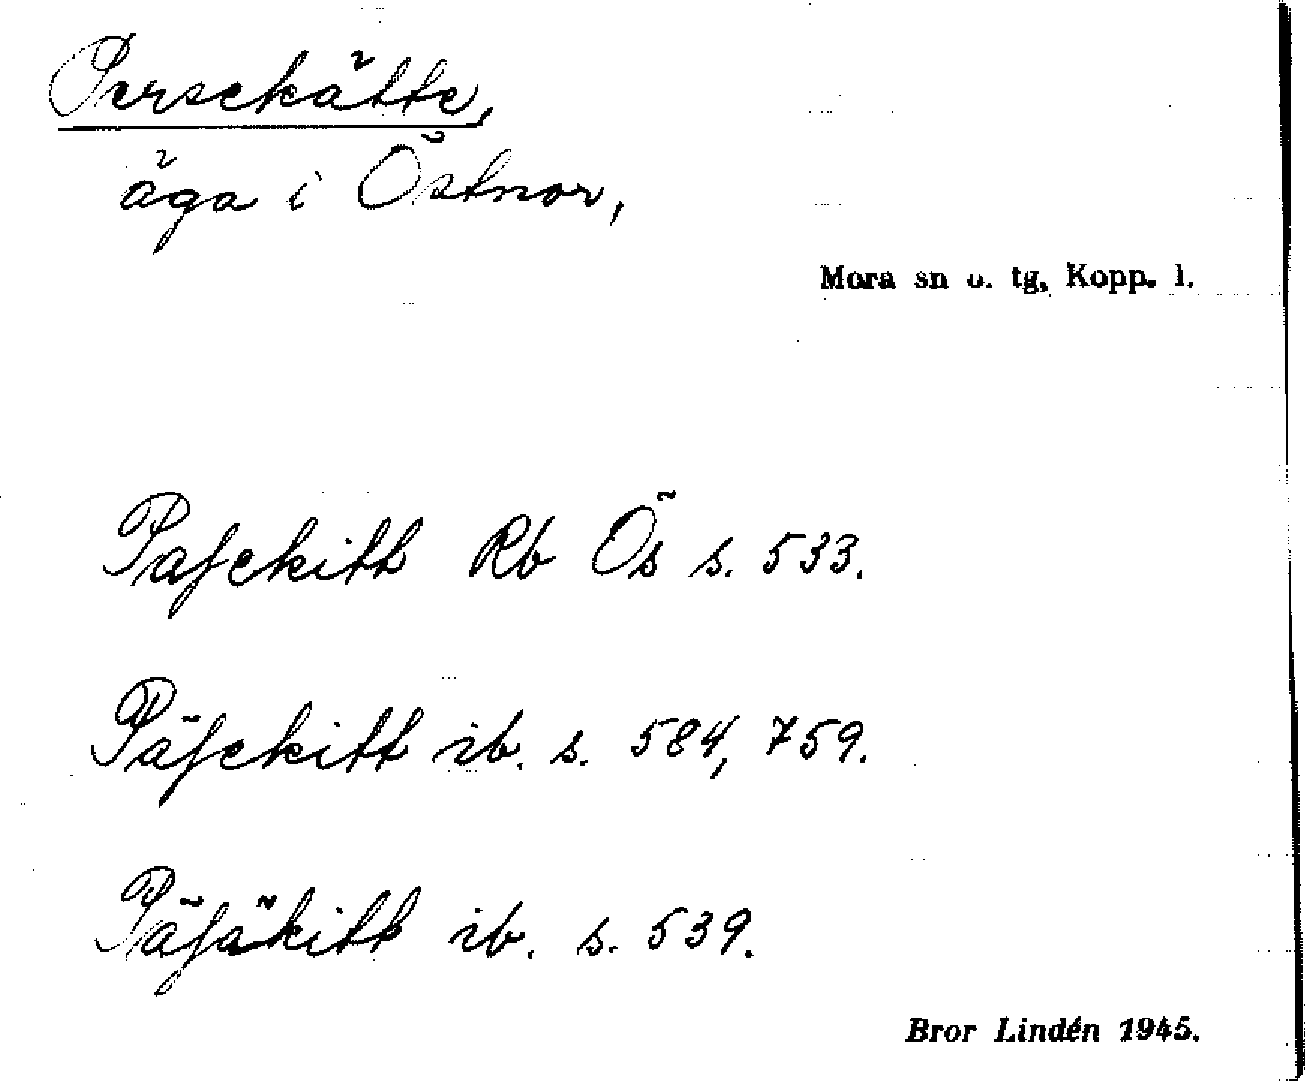 Persekätte,
äga i Östnor,
Mora sn o. tg, Kopp. l.
Pasekitt Rb Ös s. 533.
Päsekitt ib. s. 584, 759.
Päsäkitt ib. s. 539.
Bror Lindén 1945.